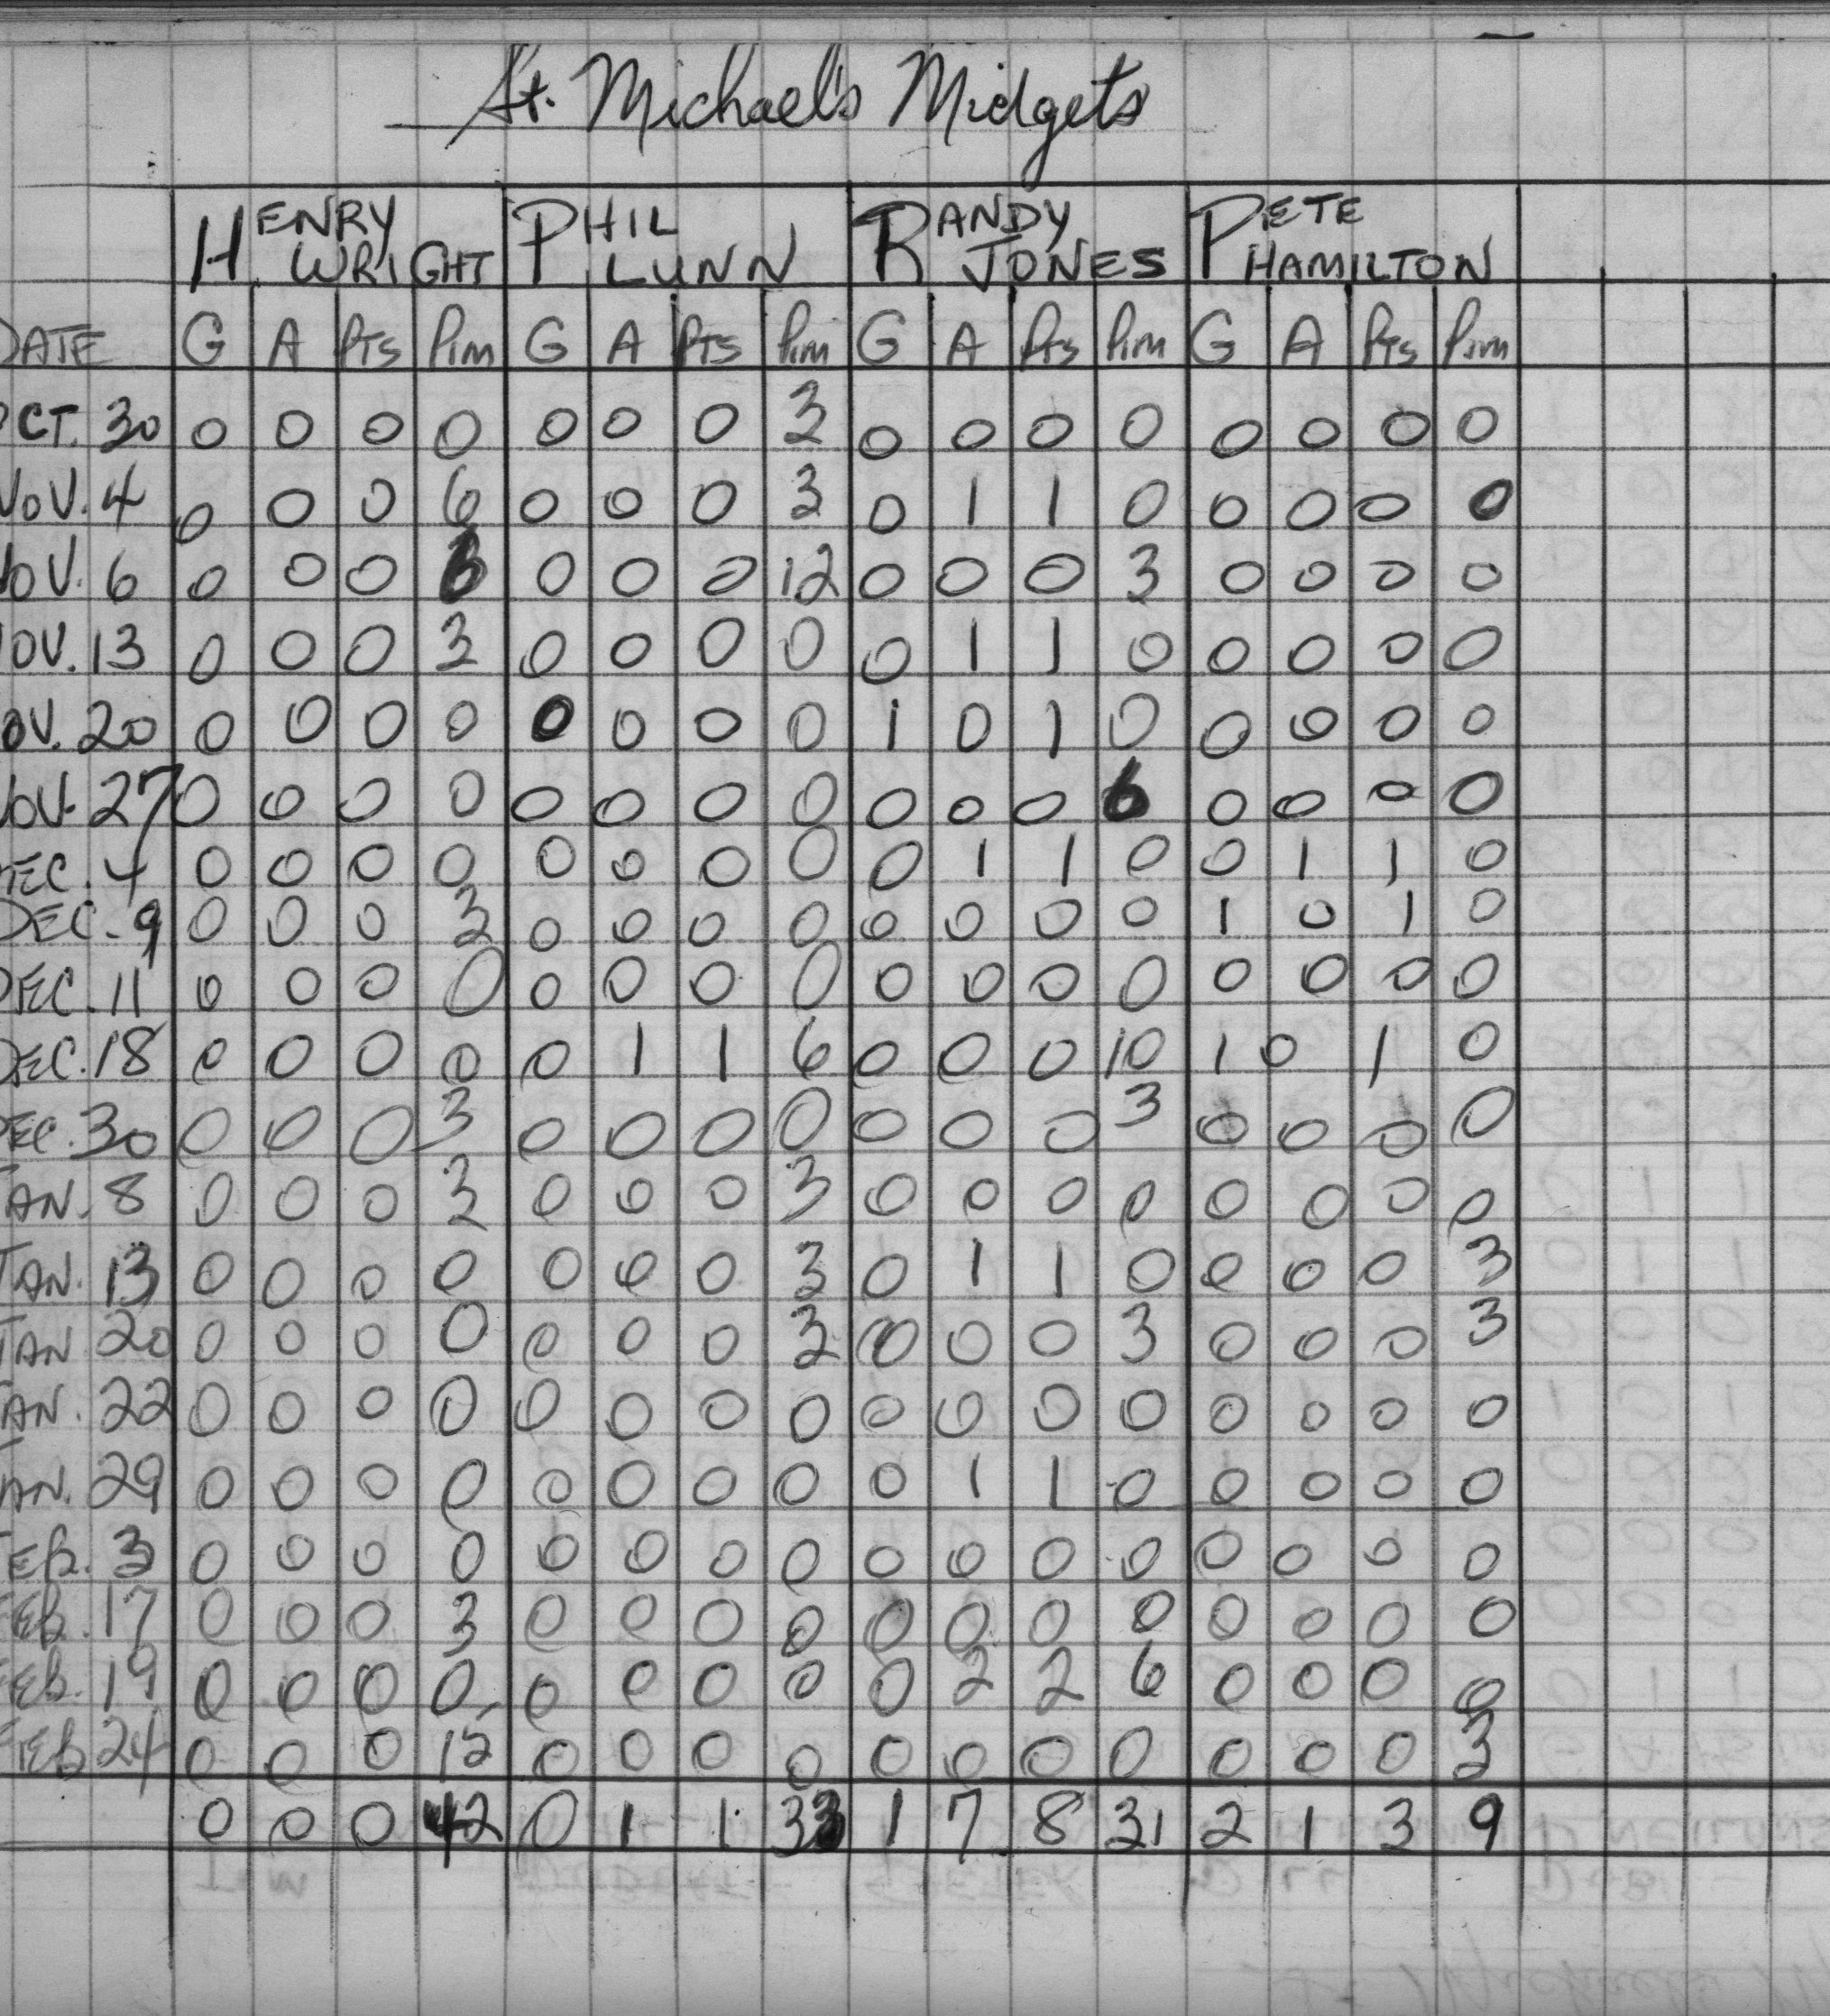 St. Michael's Midgets
HENRY WRIGHT PHIL LUNN RANDY JONES PETE HAMILTON
DATE G A Pts Pim G A Pts Pim G A Pts Pim G A Pts Pim
OCT. 30 0 0 0 0 0 0 0 3 0 0 0 0 0 0 0 0
NOV. 4 0 0 0 6 0 0 0 3 0 1 1 0 0 0 0 0
NOV. 6 0 0 0 6 0 0 0 12 0 0 0 3 0 0 0 0
NOV. 13 0 0 0 3 0 0 0 0 0 1 1 0 0 0 0 0
NOV. 20 0 0 0 0 0 0 0 0 1 0 1 0 0 0 0 0
NOV. 27 0 0 0 0 0 0 0 0 0 0 0 6 0 0 0 0
DEC. 4 0 0 0 0 0 0 0 0 0 1 1 0 0 1 1 0
DEC. 9 0 0 0 3 0 0 0 0 0 0 0 0 1 0 1 0
DEC. 11 0 0 0 0 0 0 0 0 0 0 0 0 0 0 0 0
DEC. 18 0 0 0 0 0 1 1 6 0 0 0 10 1 0 1 0
DEC. 30 0 0 0 3 0 0 0 0 0 0 0 3 0 0 0 0
JAN. 8 0 0 0 3 0 0 0 3 0 0 0 0 0 0 0 0
JAN. 13 0 0 0 0 0 0 0 3 0 1 1 0 0 0 0 3
JAN 20 0 0 0 0 0 0 0 3 0 0 0 3 0 0 0 3
JAN. 22 0 0 0 0 0 0 0 0 0 0 0 0 0 0 0 0
JAN. 29 0 0 0 0 0 0 0 0 0 1 1 0 0 0 0 0
FEB. 3 0 0 0 0 0 0 0 0 0 0 0 0 0 0 0 0
FEB. 17 0 0 0 3 0 0 0 0 0 0 0 0 0 0 0 0
FEB. 19 0 0 0 0 0 0 0 0 0 2 2 6 0 0 0 0
FEB 24 0 0 0 12 0 0 0 0 0 0 0 0 0 0 0 3
0 0 0 42 0 1 1 33 1 7 8 31 2 1 3 9